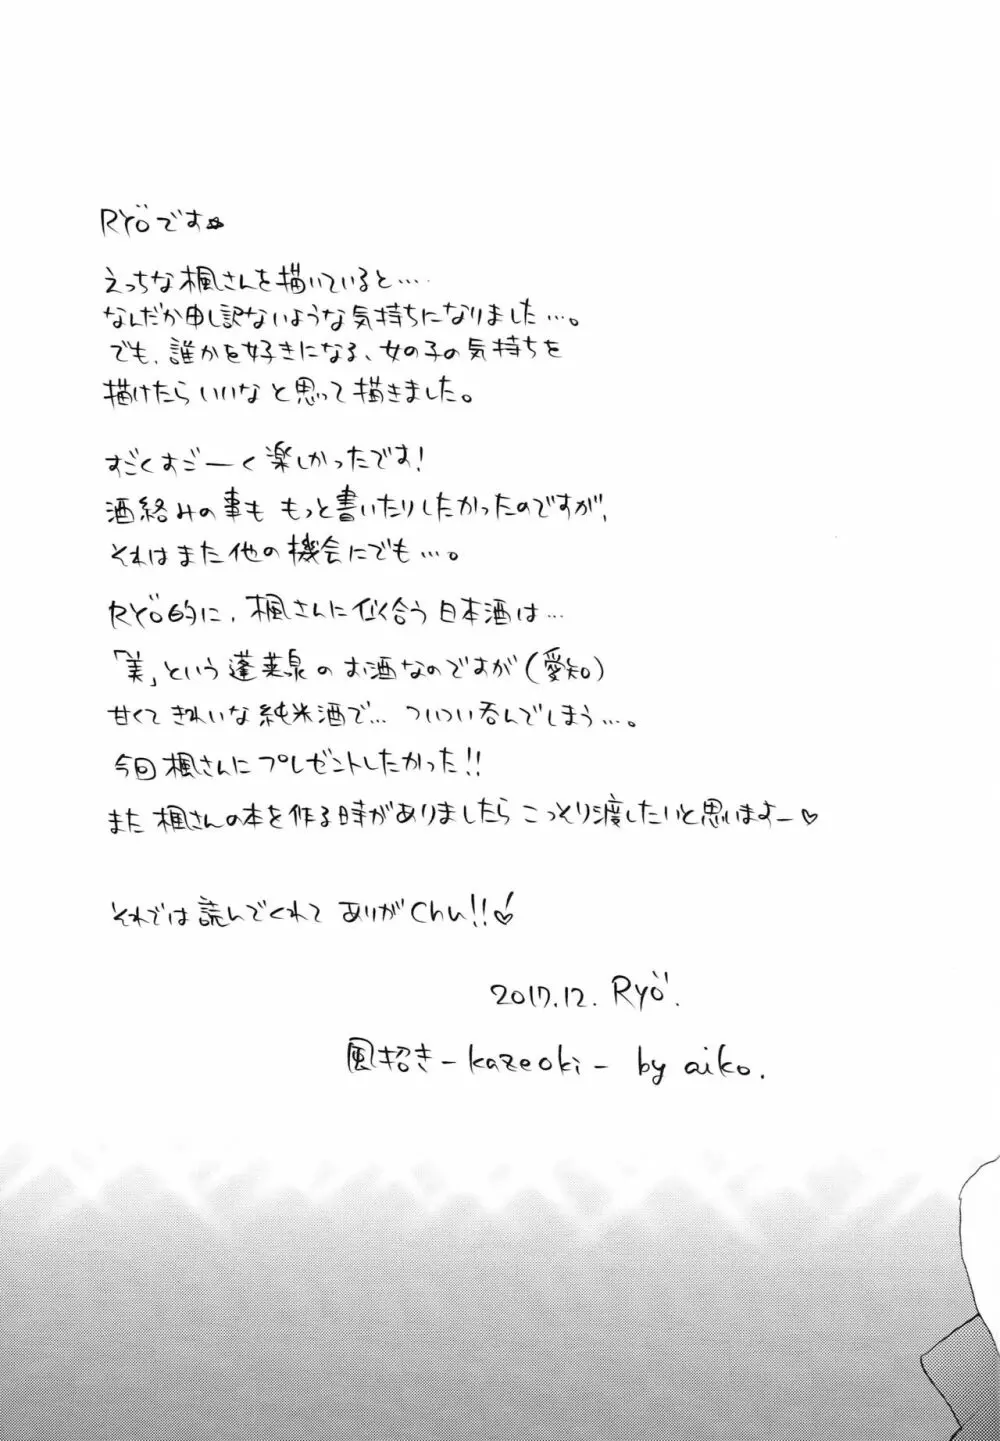 RYÖです☆
えっちな楓さんを描いていると‥‥
なんだか申し訳ないような気持ちになりました‥‥。
でも、誰かを好きになる、女の子の気持ちを
描けたらいいなと思って描きました。
すごくすごーく楽しかったです!
酒絡みの事も もっと書いたりしたかったのですが、
それはまた他の機会にでも‥‥。
RYÖ的に、楓さんに似合う日本酒は‥‥
「美」という蓬莱泉のお酒なのですが(愛知)
甘くてきれいな純米酒で‥‥ ついつい呑んでしまう‥‥。
今回楓さんにプレゼントしたかった!!
また楓さんの本を作る時がありましたら こっそり渡したいと思いますー♡
それでは読んでくれて ありがChu!!♡
2017.12. RYÖ.
風招き -kazeoki- by aiko.